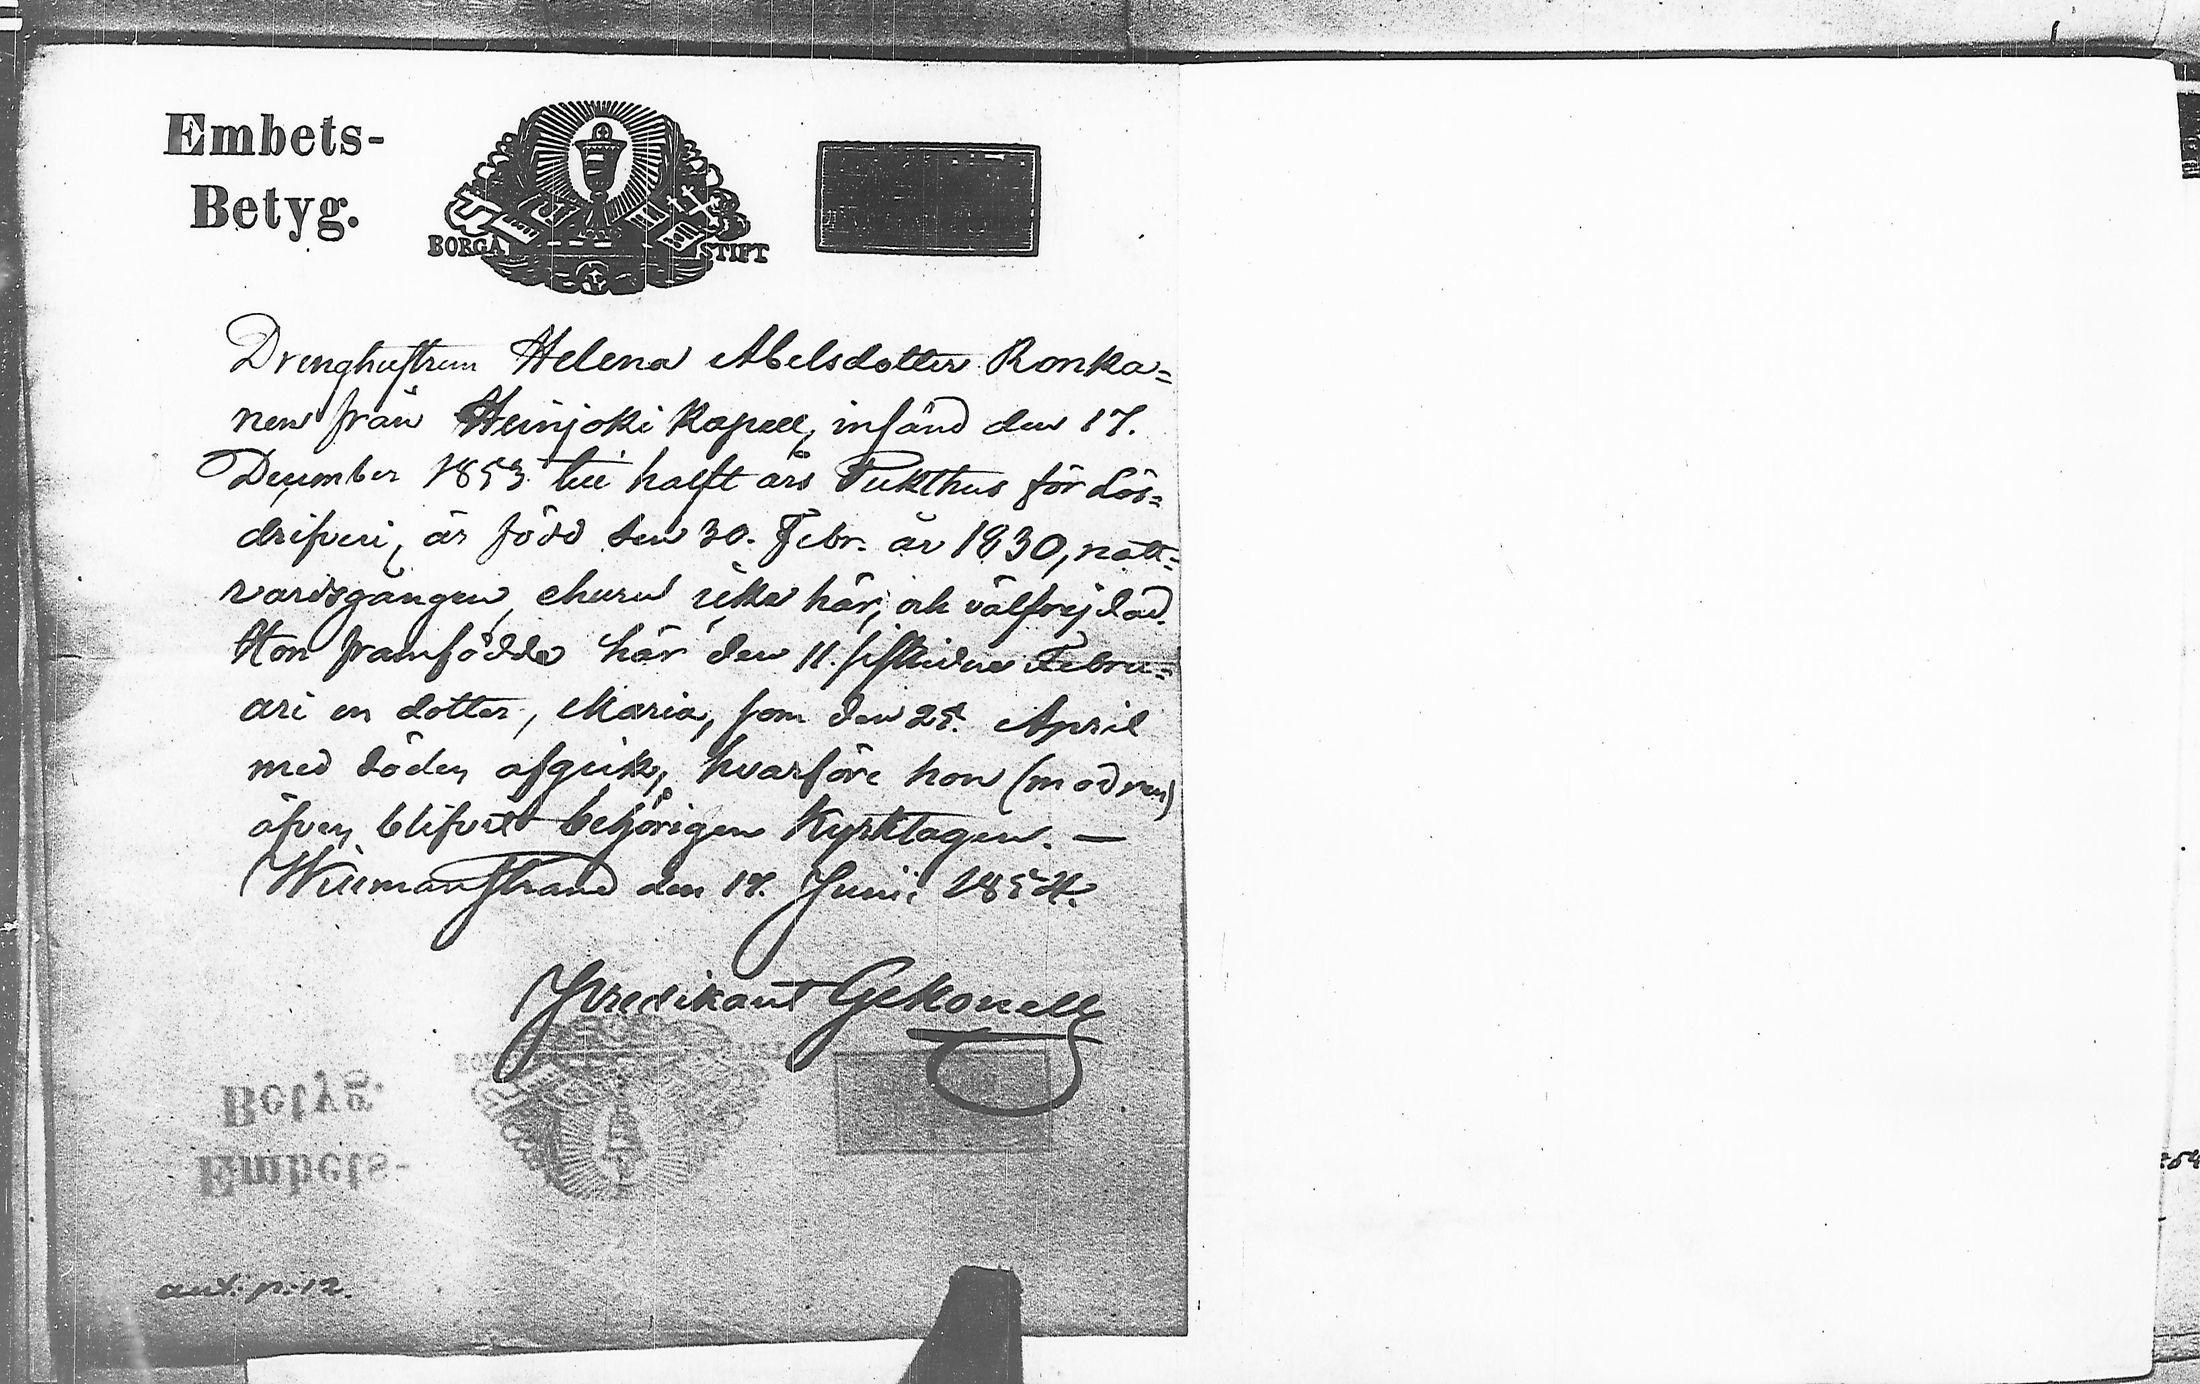 Embets-
Betyg.
BORGÅ STIFT
Drenghustrun Helena Abelsdotter Ronka=
nen från Heinjoki Kapell, insänd den 17.
December 1853 till halft års Tukthus för Lös=
drifveri, är född den 30. Febr. år 1830, natt=
vardsgången, ehuru icke här, och välfrejdad.
Hon framfödde här den 11. sistlidne Febru=
ari en dotter, Maria, som den 25. April
med döden afgick, hvarföre hon (modren)
äfven blifvit behörigen Kyrktagen. —
Willmanstrand den 17. Junii 1854.
Predikant
Betyg.
Embets-
ant. p. 12.